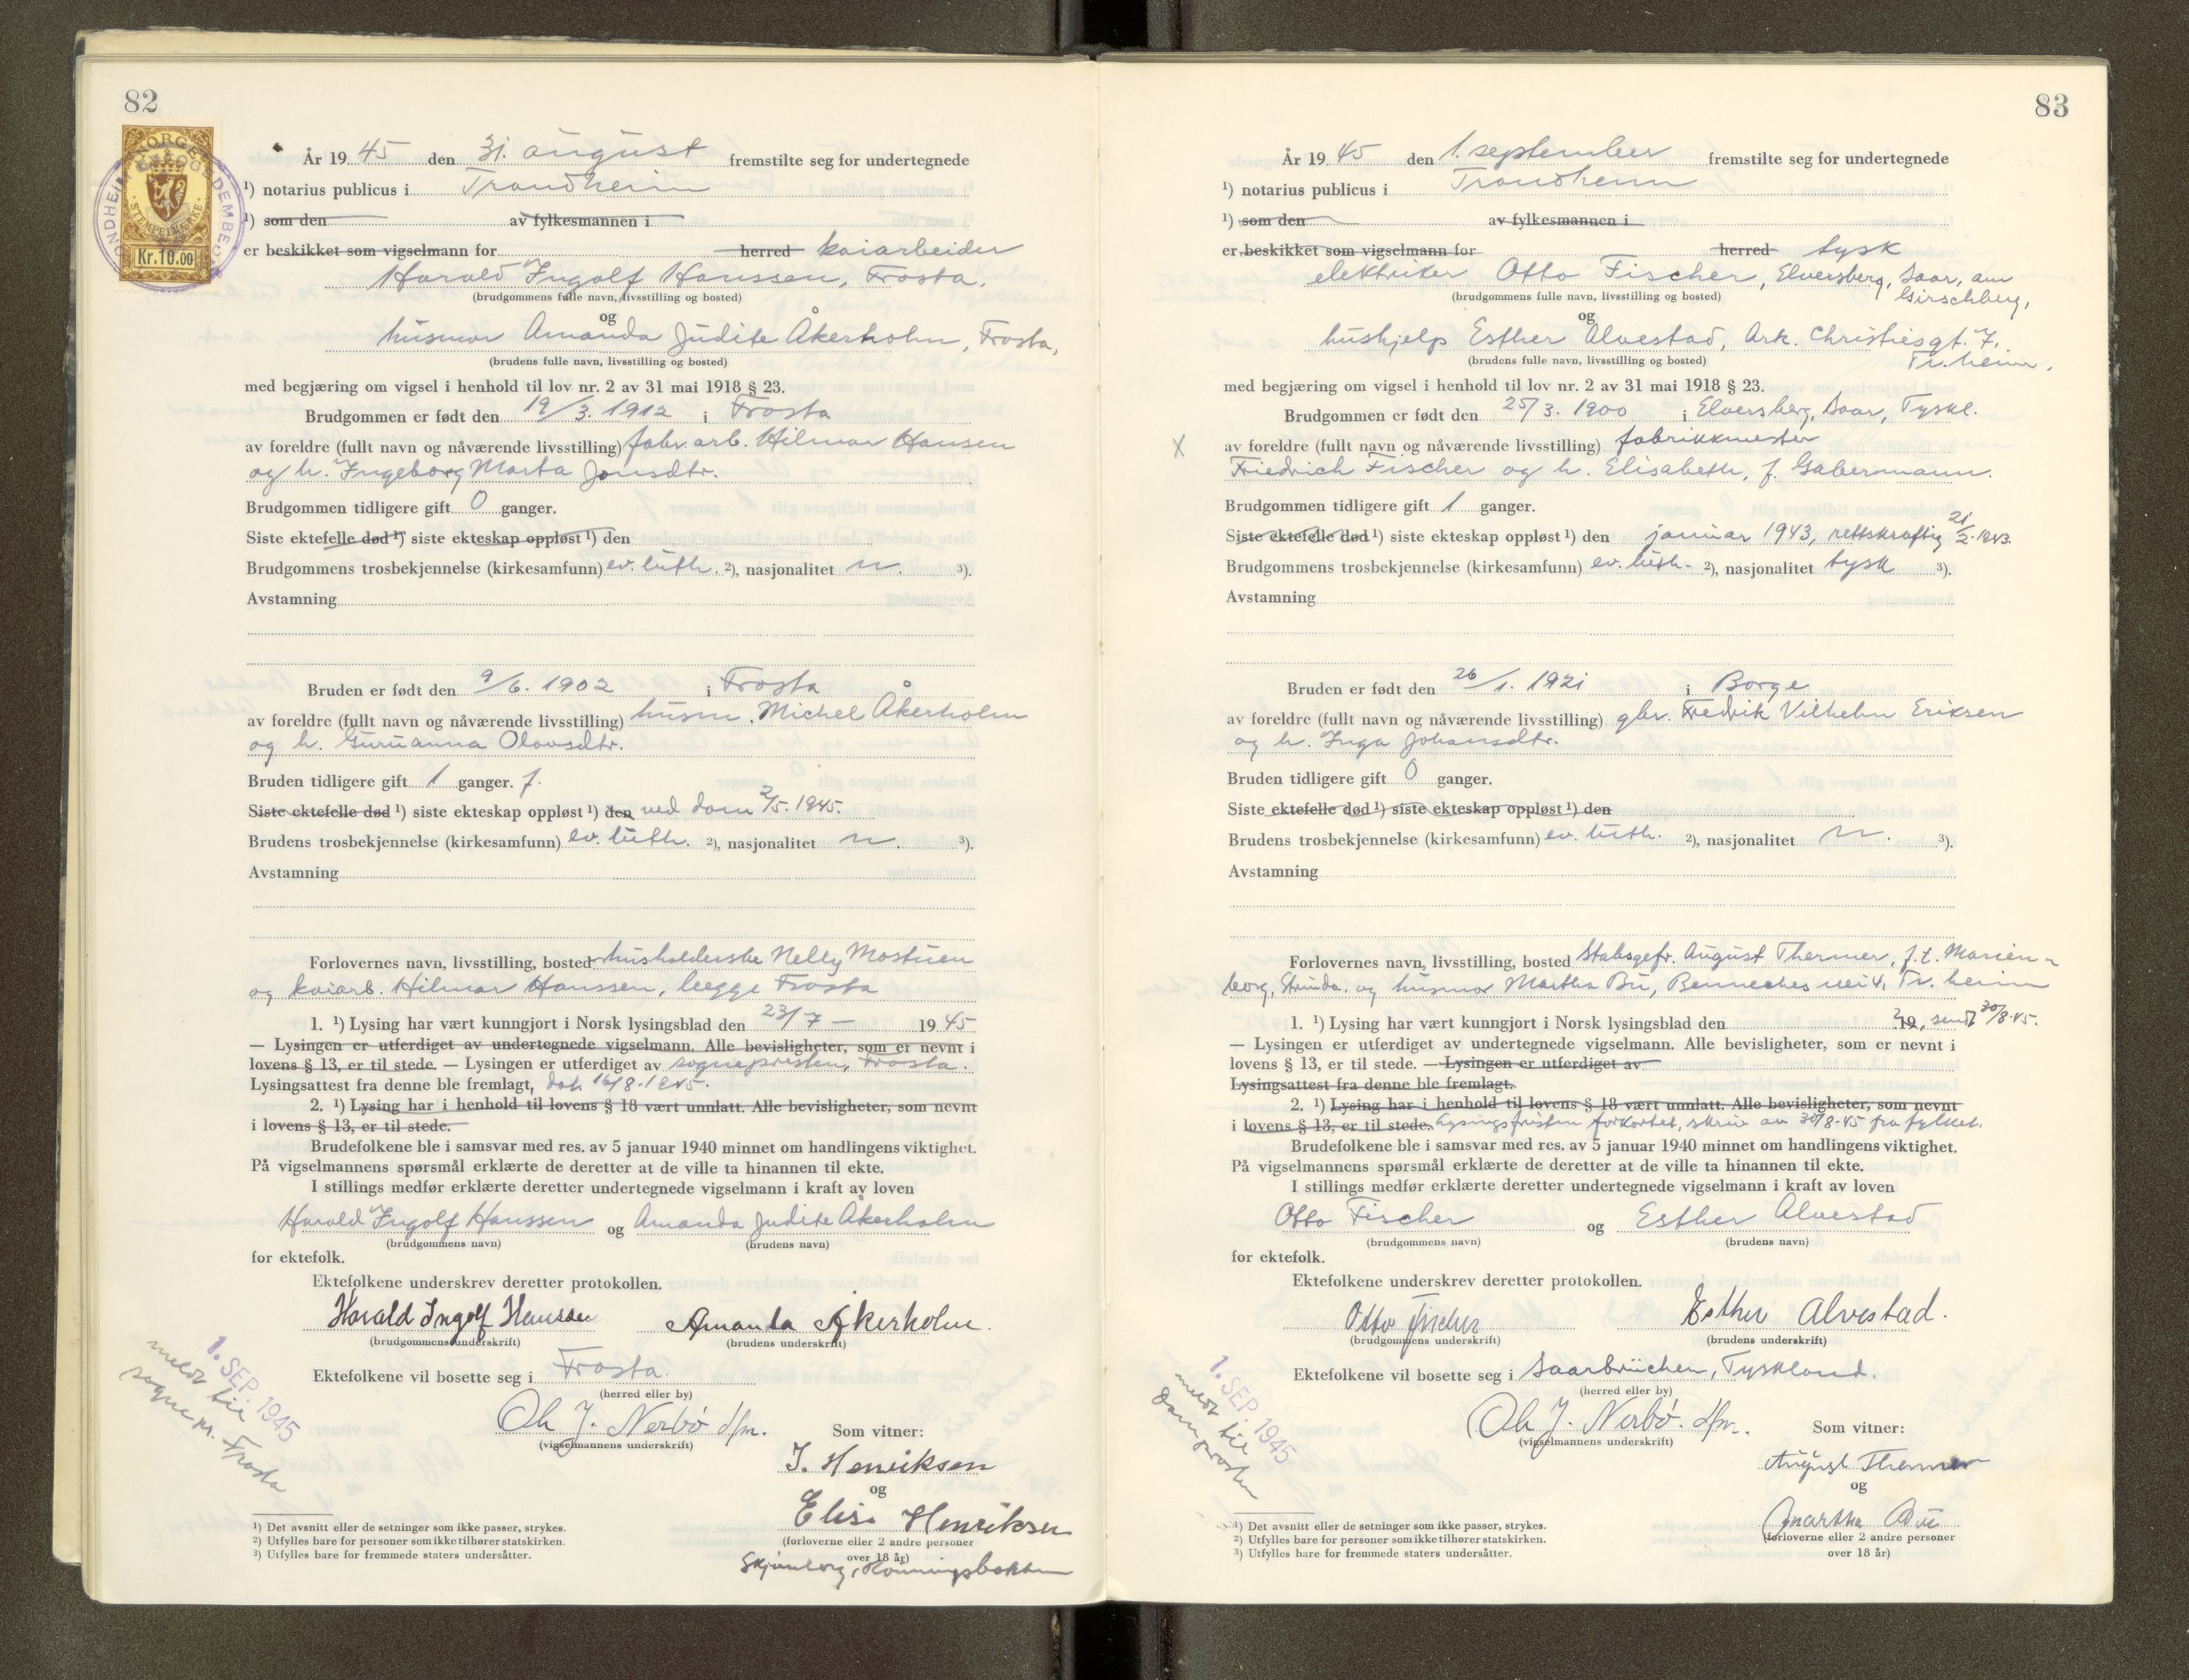 82
NORGE
STEMPELMERKE
Kr. 10.00
År 19 45 den 31. august fremstilte seg for undertegnede
¹) notarius publicus i Trondheim
¹) som den av fylkesmannen i
er beskikket som vigselmann for herred kaiarbeider
Harald Ingolf Hanssen, Frosta,
(brudgommens fulle navn, livsstilling og bosted)
og
husmor Amanda Judite Åkerholm, Frosta,
(brudens fulle navn, livsstilling og bosted)
med begjæring om vigsel i henhold til lov nr. 2 av 31 mai 1918 § 23.
Brudgommen er født den 19/3. 1912 i Frosta
av foreldre (fullt navn og nåværende livsstilling) fabr. arb. Hilmar Hansen
og h. Ingeborg Marta Jonsdtr.
Brudgommen tidligere gift 0 ganger.
Siste ektefelle død ¹) siste ekteskap oppløst ¹) den
Brudgommens trosbekjennelse (kirkesamfunn) ev. luth. ²), nasjonalitet n. ³).
Avstamning
Bruden er født den 9/6. 1902 i Frosta
av foreldre (fullt navn og nåværende livsstilling) husm. Michel Åkerholm
og h. Guruanna Olovsdtr.
Bruden tidligere gift 1 ganger. f.
Siste ektefelle død ¹) siste ekteskap oppløst ¹) den ved dom 2/5. 1945.
Brudens trosbekjennelse (kirkesamfunn) ev. luth. ²), nasjonalitet n. ³).
Avstamning
Forlovernes navn, livsstilling, bosted husholderske Nelly Mostuen
og kaiarb. Hilmar Hanssen, begge Frosta
1. ¹) Lysing har vært kunngjort i Norsk lysingsblad den 23/7 — 19 45
— Lysingen er utferdiget av undertegnede vigselmann. Alle bevisligheter, som er nevnt i
lovens § 13, er til stede. — Lysingen er utferdiget av sognepresten, Frosta.
Lysingsattest fra denne ble fremlagt, dat. 16/8. 1945.
2. ¹) Lysing har i henhold til lovens § 18 vært unnlatt. Alle bevisligheter, som nevnt
i lovens § 13, er til stede.
Brudefolkene ble i samsvar med res. av 5 januar 1940 minnet om handlingens viktighet.
På vigselmannens spørsmål erklærte de deretter at de ville ta hinannen til ekte.
I stillings medfør erklærte deretter undertegnede vigselmann i kraft av loven
Harald Ingolf Hanssen og Amanda Judite Åkerholm
(brudgommens navn) (brudens navn)
for ektefolk.
Ektefolkene underskrev deretter protokollen.
Harald Ingolf Hanssen Amanda Åkerholm.
(brudgommens underskrift) (brudens underskrift)
Ektefolkene vil bosette seg i Frosta.
(herred eller by)
Ole J. Nerbö dfm.
(vigselmannens underskrift)
Som vitner:
J. Henriksen
og
Elise Henriksen
(forloverne eller 2 andre personer
over 18 år)
1. SEP. 1945
meldt til
sognepr. Frosta
¹) Det avsnitt eller de setninger som ikke passer, strykes.
²) Utfylles bare for personer som ikke tilhører statskirken.
³) Utfylles bare for fremmede staters undersåtter.
83
År 19 45 den 1. september fremstilte seg for undertegnede
¹) notarius publicus i Trondheim
¹) som den av fylkesmannen i
er beskikket som vigselmann for herred tysk
elektriker Otto Fischer, Elversberg, Saar, am
Girschberg,
(brudgommens fulle navn, livsstilling og bosted)
og
hushjelp Esther Alvestad, Ark. Christiesgt. 7,
Tr.heim,
(brudens fulle navn, livsstilling og bosted)
med begjæring om vigsel i henhold til lov nr. 2 av 31 mai 1918 § 23.
Brudgommen er født den 25/3. 1900 i Elversberg, Saar, Tyskl.
X av foreldre (fullt navn og nåværende livsstilling) fabrikkmester
Friedrich Fischer og h. Elisabeth, f. Gabermann.
Brudgommen tidligere gift 1 ganger.
Siste ektefelle død ¹) siste ekteskap oppløst ¹) den januar 1943, rettskraftig 21/2. 1943.
Brudgommens trosbekjennelse (kirkesamfunn) ev. luth. ²), nasjonalitet tysk ³).
Avstamning
Bruden er født den 26/1. 1921 i Borge
av foreldre (fullt navn og nåværende livsstilling) gbr. Fredrik Vilhelm Eriksen
og h. Inga Johansdtr.
Bruden tidligere gift 0 ganger.
Siste ektefelle død ¹) siste ekteskap oppløst ¹) den
Brudens trosbekjennelse (kirkesamfunn) ev. luth. ²), nasjonalitet n. ³).
Avstamning
Forlovernes navn, livsstilling, bosted Stabsgefr. August Thermer, f.t. Marien-
borg, Strinda, og husmor Martha Bu, Bennechesvei 4, Tr.heim
1. ¹) Lysing har vært kunngjort i Norsk lysingsblad den ? 19, sendt 30/8.45.
— Lysingen er utferdiget av undertegnede vigselmann. Alle bevisligheter, som er nevnt i
lovens § 13, er til stede. — Lysingen er utferdiget av
Lysingsattest fra denne ble fremlagt.
2. ¹) Lysing har i henhold til lovens § 18 vært unnlatt. Alle bevisligheter, som nevnt
i lovens § 13, er til stede. Lysingsfristen forkortet, skriv av 30/8.45 fra fylket.
Brudefolkene ble i samsvar med res. av 5 januar 1940 minnet om handlingens viktighet.
På vigselmannens spørsmål erklærte de deretter at de ville ta hinannen til ekte.
I stillings medfør erklærte deretter undertegnede vigselmann i kraft av loven
Otto Fischer og Esther Alvestad
(brudgommens navn) (brudens navn)
for ektefolk.
Ektefolkene underskrev deretter protokollen.
Otto Fischer Esther Alvestad.
(brudgommens underskrift) (brudens underskrift)
Ektefolkene vil bosette seg i Saarbrücken, Tyskland.
(herred eller by)
Ole J. Nerbö. dfm.
(vigselmannens underskrift)
Som vitner:
August Thermer
og
Martha Bu
(forloverne eller 2 andre personer
over 18 år)
1. SEP. 1945
meldt til
Domprosten
¹) Det avsnitt eller de setninger som ikke passer, strykes.
²) Utfylles bare for personer som ikke tilhører statskirken.
³) Utfylles bare for fremmede staters undersåtter.